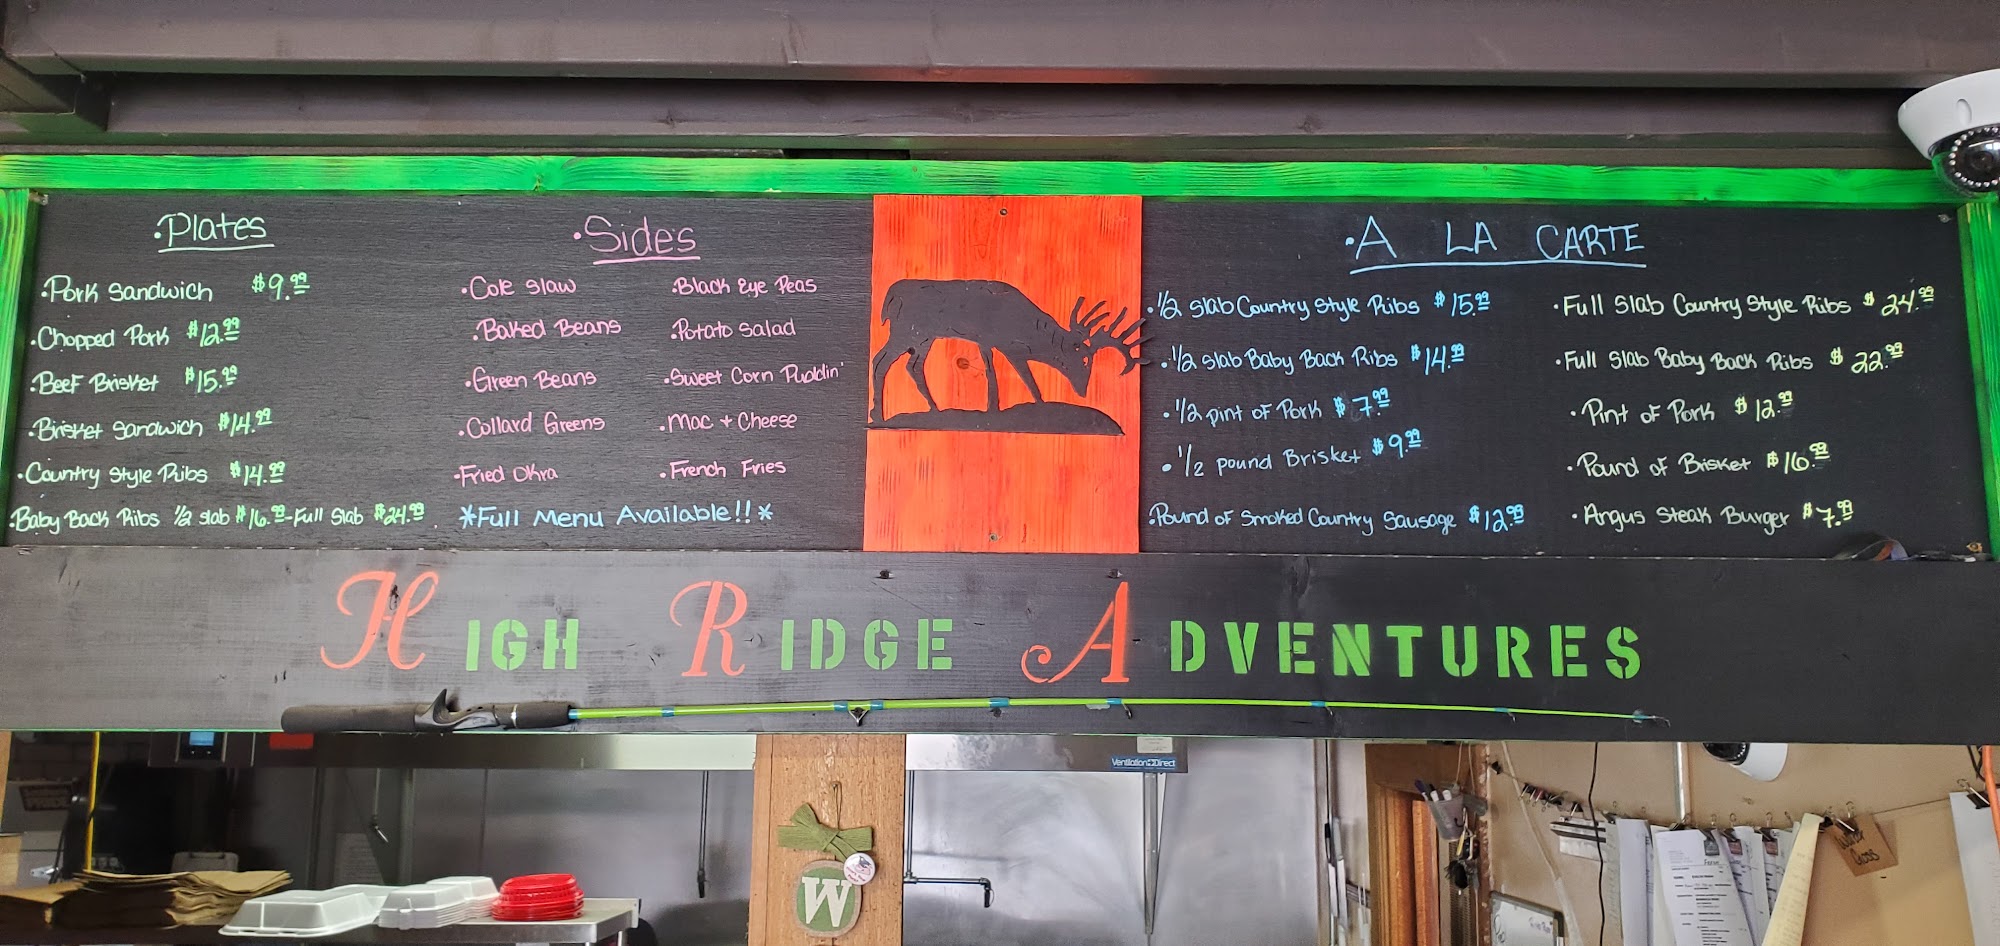 •Plates
•Pork Sandwich $9.99
•Chopped Pork $12.99
•Beef Brisket $15.99
•Brisket Sandwich $14.99
•Country Style Ribs $14.99
•Baby Back Ribs ½ slab $16.99-Full Slab $24.99
•Sides
•Cole Slaw
•Baked Beans
•Green Beans
•Collard Greens
•Fried Okra
•Black Eye Peas
•Potato Salad
•Sweet Corn Puddin'
•Mac + Cheese
•French Fries
*Full Menu Available!!*
•A LA CARTE
•½ Slab Country Style Ribs $15.99
•½ Slab Baby Back Ribs $14.99
•½ pint of Pork $7.99
•½ pound Brisket $9.99
•Pound of Smoked Country Sausage $12.99
•Full Slab Country Style Ribs $24.99
•Full Slab Baby Back Ribs $22.99
•Pint of Pork $12.99
•Pound of Brisket $16.99
•Angus Steak Burger $7.99
HIGH RIDGE ADVENTURES
Ventilation Direct
W